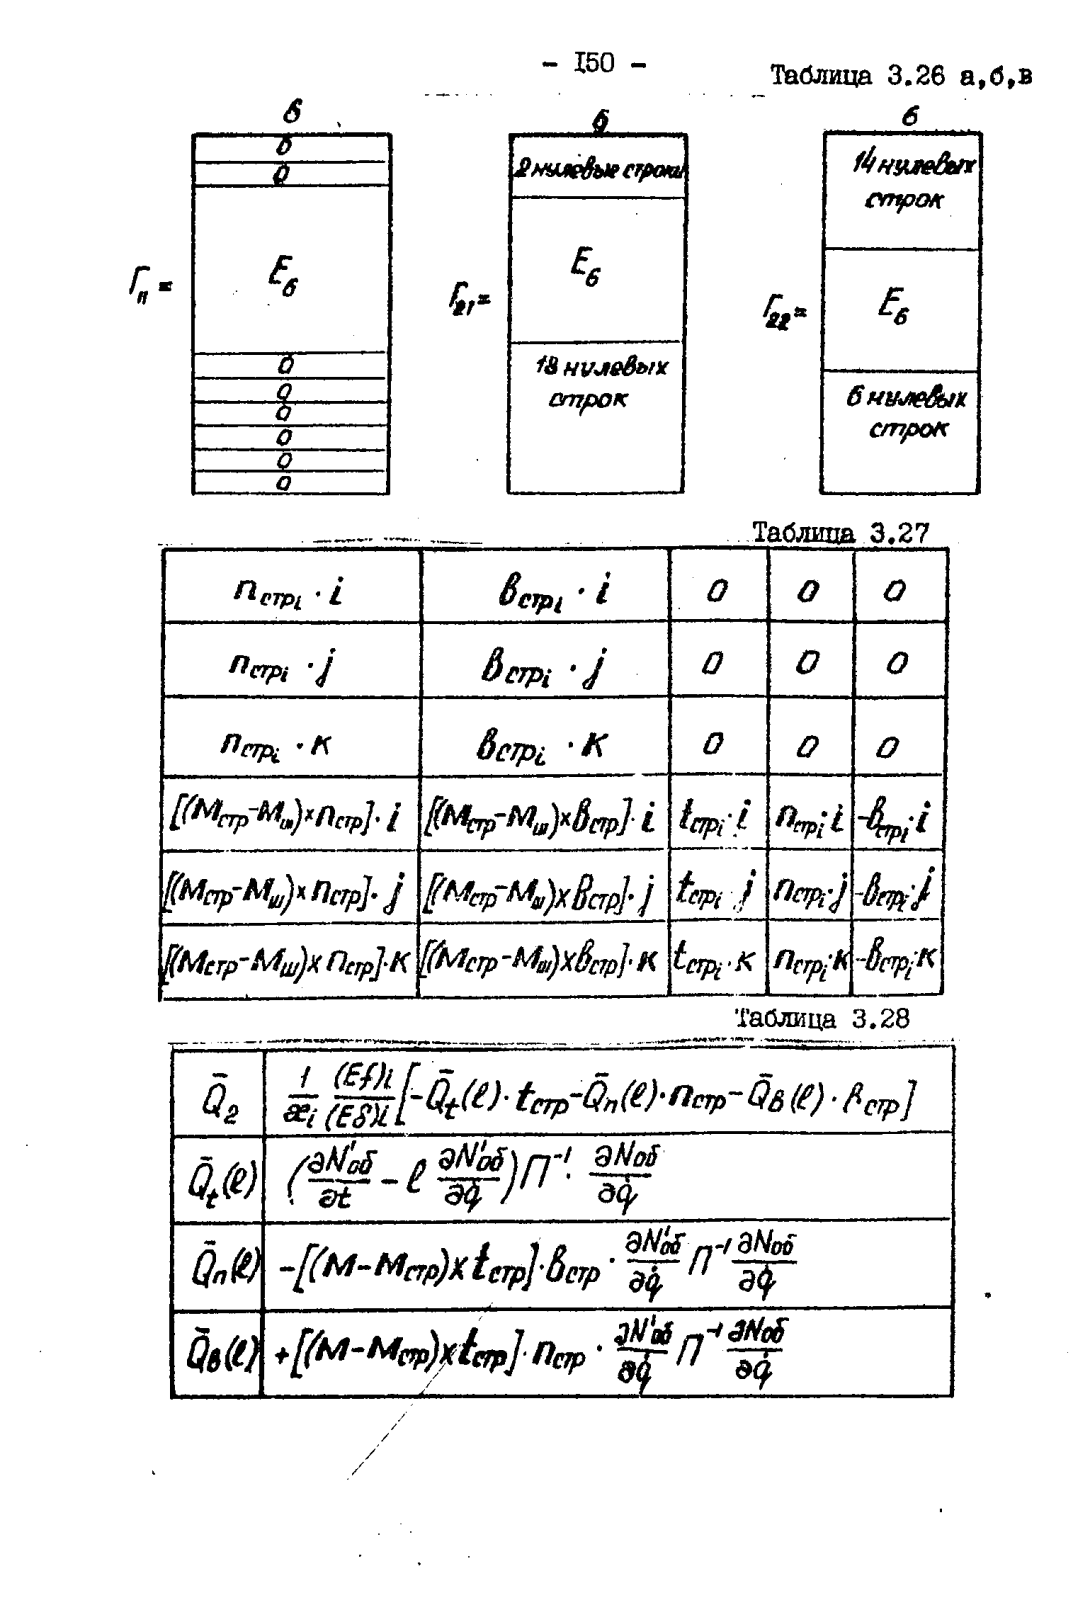 - 150 -
Таблица 3.26 а,б,в
6 6 6
0
0
Гп = E6
0
0
0
0
0
0
2 нулевые строки
Г21 = E6
18 нулевых
строк
14 нулевых
строк
Г22 = E6
6 нулевых
строк
Таблица 3.27
nстрi · i встрi · i 0 0 0
nстрi · j встрi · j 0 0 0
nстрi · к встрi · к 0 0 0
[(Mстр-Mш)×nстр]· i [(Mстр-Mш)×встр]· i tстрi · i nстрi · i -встрi · i
[(Mстр-Mш)×nстр]· j [(Mстр-Mш)×встр]· j tстрi j nстрi · j -встрi · j
[(Mстр-Mш)×nстр]· к [(Mстр-Mш)×встр]· к tстрi · к nстрi · к -встрi · к
Таблица 3.28
Q̄2 1/æi (Ef)i/(Eδ)i [-Q̄t(ℓ)· tстр-Q̄n(ℓ)· nстр-Q̄в(ℓ)· встр]
Q̄t(ℓ) (∂N'об/∂t - ℓ ∂N'об/∂q̇) П⁻¹· ∂Nоб/∂q̇
Q̄n(ℓ) -[(M-Mстр)×tстр]· встр · ∂N'об/∂q̇ П⁻¹ ∂Nоб/∂q̇
Q̄в(ℓ) +[(M-Mстр)×tстр]· nстр · ∂N'об/∂q̇ П⁻¹ ∂Nоб/∂q̇